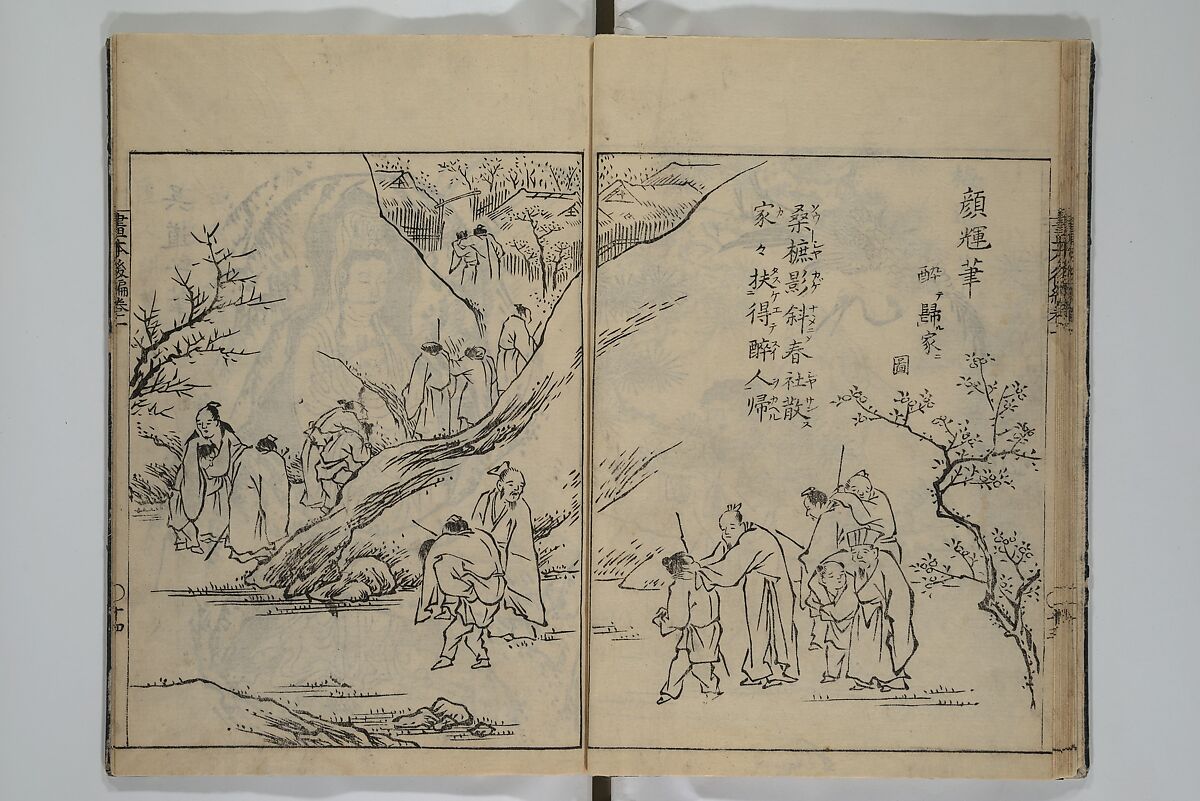 顔輝筆
酔テ歸ル家ニ
圖
桑樜影斜春社散
家々扶得醉人帰
畫本後編巻二
十四